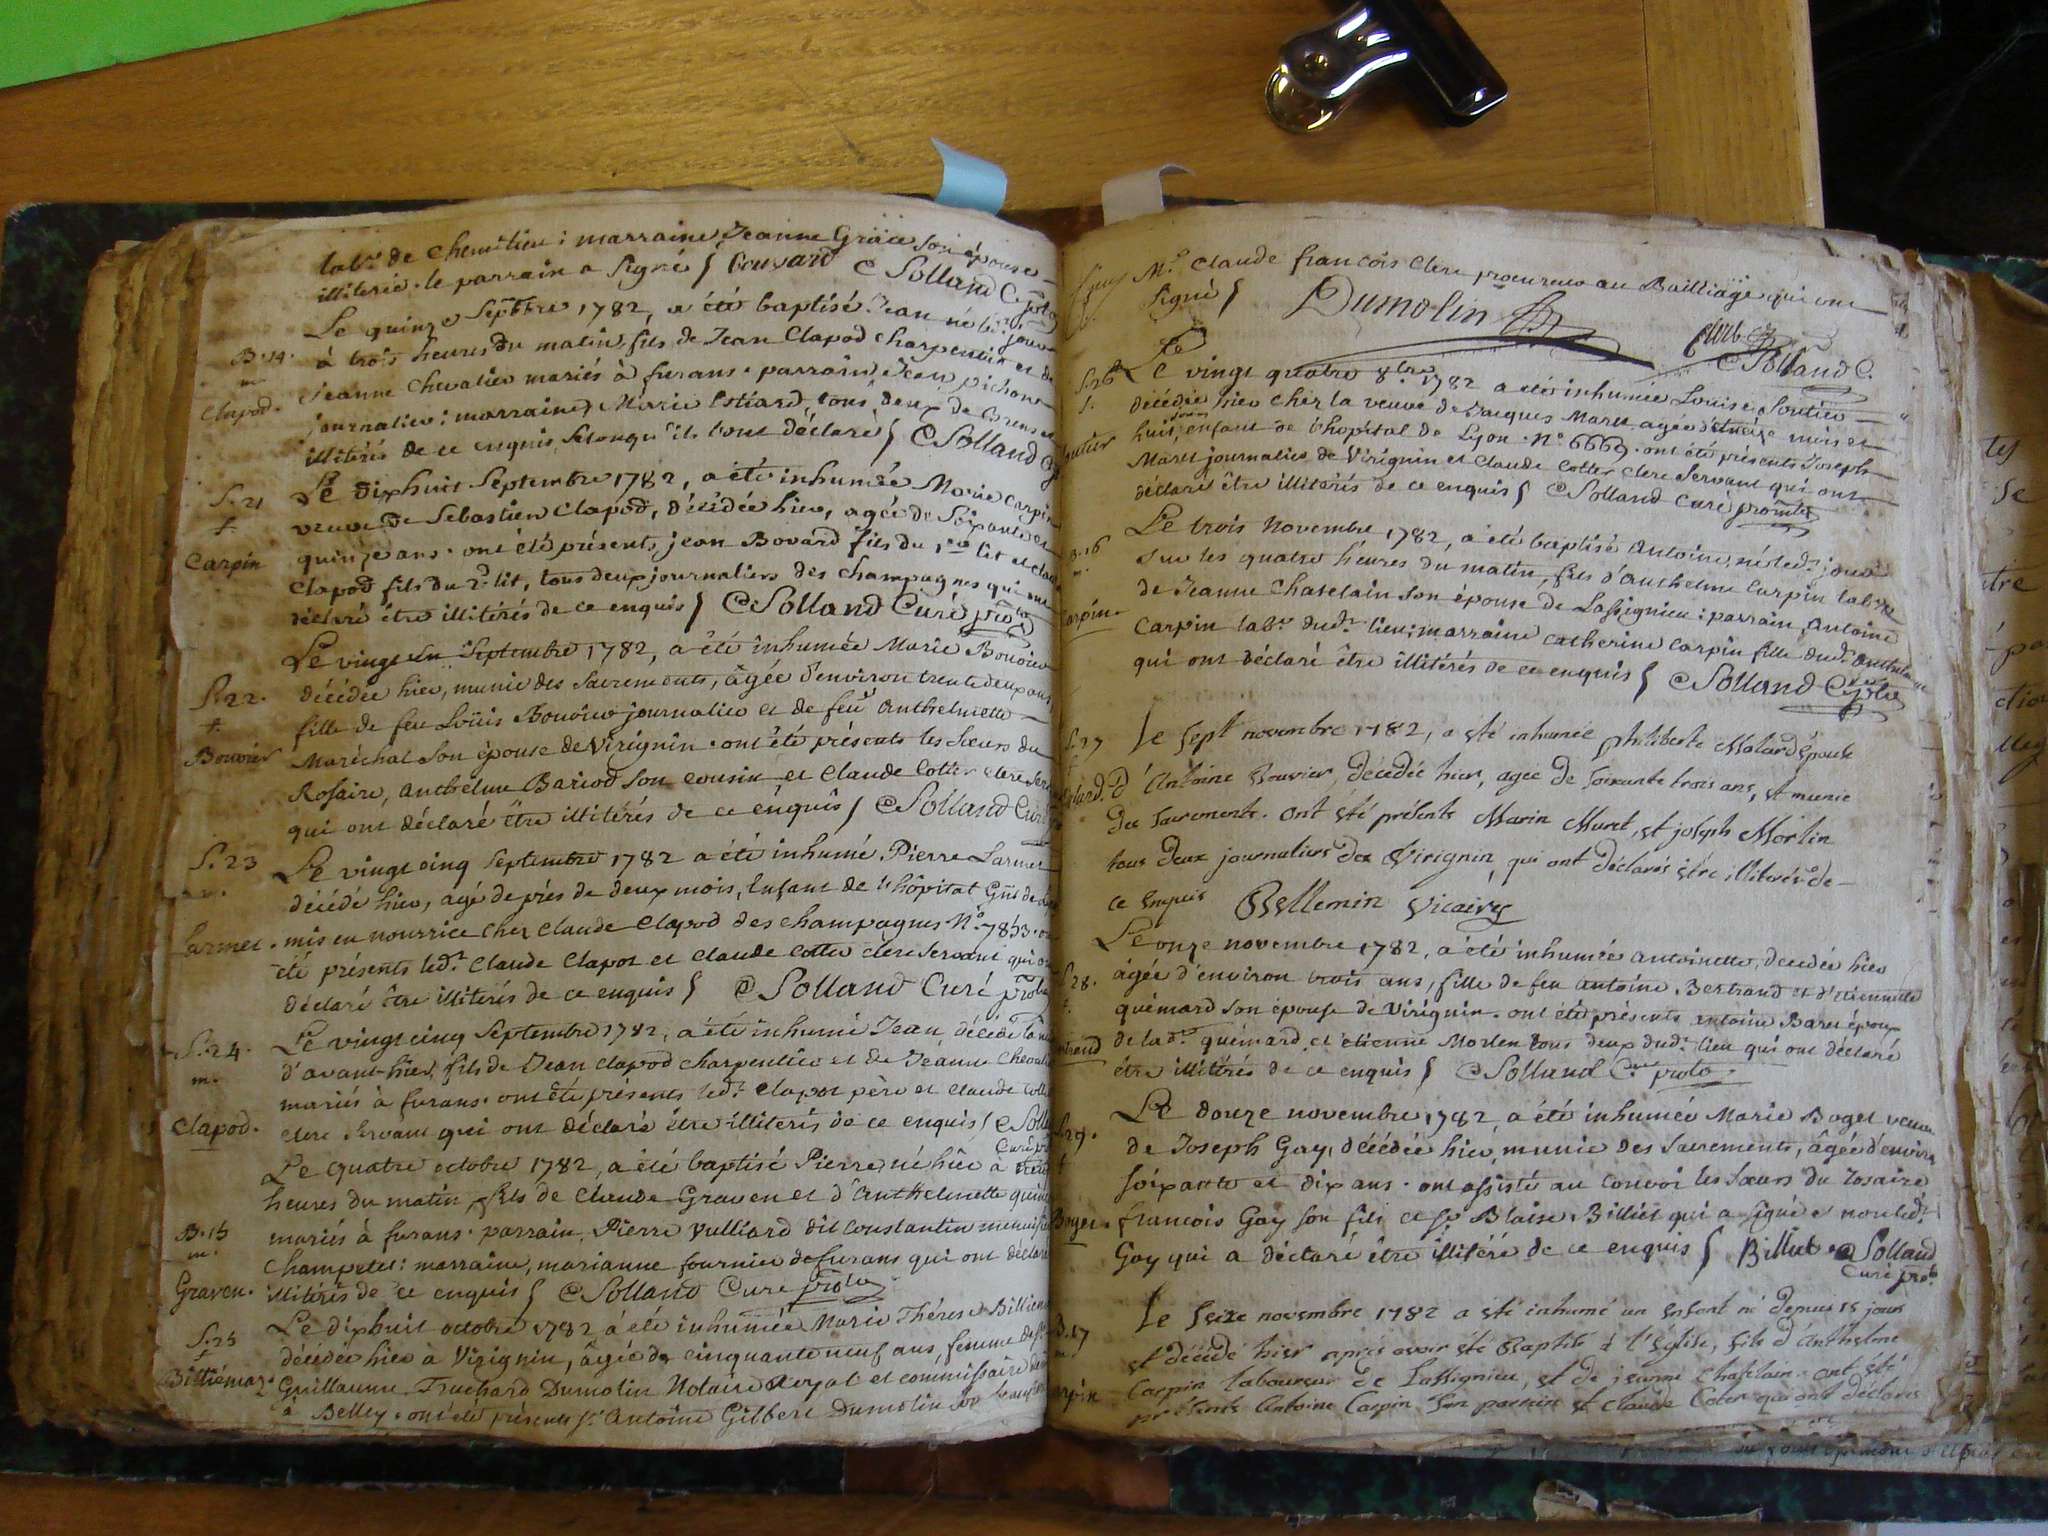 labr. de Chemilieu : marraine, Jeanne son épouse
illiterée. le parrain a signé / Bouvard C Solland C.
Le quinze Septbre 1782, a été baptisé Jean né led. jour
B. 14.
m.
Clapod.
à trois heures du matin, fils de Jean Clapod charpentier et de
Jeanne Chevalier mariés à furans. parrain, Jean pichon
journalier : marraine, Marie tous deux de Brens
illitérés de ce enquis, selonqu'ils l'ont déclaré / C Solland
S. 21
f.
Carpin
Le dixhuit Septembre 1782, a été inhumée Marie Carpin
veuve de Sebastien Clapod, décédée hier, agée de Soixante et
quinze ans. ont été présents, jean Bovard fils du 1er lit et
Clapod fils du 2d. lit, tous deux journaliers des champagnes qui ont
déclaré être illitérés de ce enquis / C Solland Curé
S. 22.
f.
Bouvier
Le vingt un Septembre 1782, a été inhumée Marie Bouvier
décédée hier, munie des Sacrements, âgée d'environ trente deux ans,
fille de feu Loüis Bouvier journalier et de feu Anthelmette
Maréchal son épouse de Virignin. ont été présents les Sœurs du
Rosaire, Anthelme Bariod son cousin et Claude Cotter clerc
qui ont déclaré être illitérés de ce enquis / C Solland Curé
S. 23
Larmet.
Le vingt cinq Septembre 1782 a été inhumé Pierre Larmet
décédé hier, agé de près de deux mois, Enfant de l'hôpital
mis en nourrice cher Claude Clapod des champagnes No. 7853.
été présents led. Claude Clapot et Claude Cotter clerc Servant qui
déclaré être illitérés de ce enquis / C Solland Curé
S. 24.
m.
Clapod.
Le vingt cinq Septembre 1782, a été inhumé Jean, décédé
d'avant-hier, fils de Jean Clapod charpentier et de Jeanne
mariés à furans. ont été présents led. Clapot père et Claude
clerc Servant qui ont déclaré être illitérés de ce enquis / C
B. 15
m.
Graven.
Le quatre octobre 1782, a été baptisé Pierre, né hier à
heures du matin, fils de Claude Graven et d'Anthelmette
mariés à furans. parrain, Pierre Vulliard dit Constantin
Champetel : marraine, marianne fournier de furans qui ont déclaré
illitérés de ce enquis / C Solland Curé
S. 25
f
Billiémaz.
Le dixhuit octobre 1782 a été inhumée Marie Thérese
décédée hier à Virignin, âgée de cinquante neuf ans, femme de
Guillaume Truchard Dumolin Notaire Royal et commissaire
à Belley. ont été présents Sr. Antoine Gilbert Dumolin son
Mre. Claude françois Clerc procureur au Bailliage qui ont
signé / Dumolin
Clerc
C Solland C.
S. 26
f.
Le vingt quatre 8bre 1782 a été inhumée Louise
décédée hier cher la veuve de Jacques Maret agée de mois et
huit jours, enfant de l'hopital de Lyon. No. 6669. ont été présents Joseph
Maret journalier de Virignin et Claude Cotter clerc Servant qui ont
déclaré être illitérés de ce enquis / C Solland Curé
B. 16
m.
Carpin.
Le trois Novembre 1782, a été baptisé Antoine, né led. jour
sur les quatre heures du matin, fils d'Anthelme Carpin
de Jeanne Chatelain son épouse de Lassignieu : parrain, Antoine
Carpin labr. dud. lieu; marraine Catherine Carpin fille dud.
qui ont déclaré être illitérés de ce enquis / C Solland
S. 27
Le sept novembre 1782, a été inhumée philiberte Molard épouse
d'Antoine Bouvier, décédée hier, agée de soixante trois ans, et munie
des sacrements. ont été présents Marin Muret, et joseph Morlin
tous deux journaliers de Virignin, qui ont déclarés être illiterés de
ce enquis Bellemin Vicaire
28.
f
Le onze novembre 1782, a été inhumée Antoinette, decedée hier
âgée d'environ trois ans, fille de feu Antoine Bertrand et d'Etiennette
quémard son épouse de Virignin. ont été présents Antoine Baret époux
de lad. quémard, et étienne Morlen tous deux dud. lieu qui ont déclaré
être illitérés de ce enquis / C Solland
29.
f
Boget.
Le douze novembre 1782, a été inhumée Marie Boget veuve
de Joseph Gay, décédée hier, munie des Sacrements, âgée d'environ
soixante et dix ans. ont assisté au convoi les Sœurs du rosaire
françois Gay son fils et Sr. Blaise Billiet qui a signé et non led.
Gay qui a déclaré être illitéré de ce enquis / Billiet C Solland
Curé
17
m
Le seize novembre 1782 a été inhumé un Enfant né depuis 15 jours
et décédé hier après avoir été Baptisé à l'Eglise, fils d'Anthelme
Carpin laboureur de Lassignieu, et de jeanne Chatelain. ont été
présents Antoine Carpin son parrain et Claude Coter qui ont déclarés